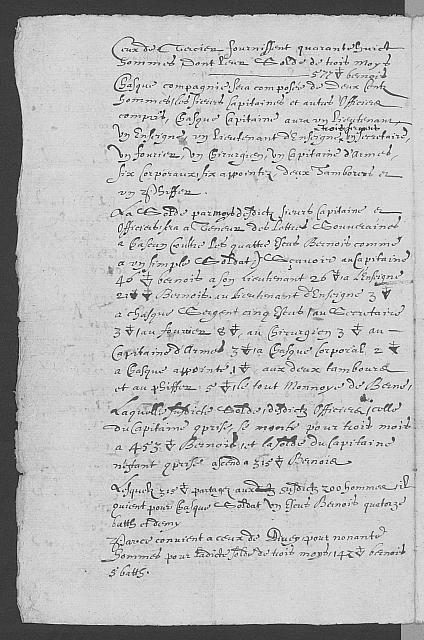 Ceux de Tercier fournissent quarante huict
hommes dont leur Solde de trois moys
577 ∇ bernois
Chasque compagnie sera composée de deux Cents
hommes les Sieurs Capitaines et autres Officiers
compris, Chasque Capitaine aura vn Lieutenant
vn Enseigne, vn Lieutenant d'Enseigne, trois sergents, vn Secretaire,
vn fourier, vn Chirurgien, vn Capitaine d'Armes,
six Corporaux, six appointez, deux Tambours et
vn Phiffer.
La Solde par moys desdicts sieurs Capitaine et
Officiers, sera a Teneur des Lettres Souueraines
a Chascun oultre les quattre Escus Bernois comme
a vn simple Soldat, Sçauoire au Capitaine
40 ∇ bernois a son Lieutenant 26 ∇ a l'Enseigne
∇ Bernois, au Lieutenant d'Enseigne 3 ∇
a chasque Sergent cinq Escus, au Secretaire
3 ∇, au fourier 8 ∇, au Chirurgien 3 ∇ au
Capitaine d'Armes 3 ∇, a Chasque Corporal 2 ∇
a Chasque appointé 1 ∇, aux deux tambours
et au phiffer 5 ∇, le tout Monnoye de Berne,
Laquelle susdicte Solde desdicts Officiers, celle
du Capitaine comprise, se monte pour trois mois
a 453 ∇ Bernois, et la Solde du Capitaine
n'estant comprise ascend a 315 ∇ Bernois
Lesquels 315 ∇ partagez aux susdicts 200 hommes, il
conuient pour Chasque Soldat vn Escus Bernois quatorze
batth et demy
Parce conuient a ceux de pour nonante
hommes pour ladicte solde de trois moys 142 ∇ bernois
5 batth.